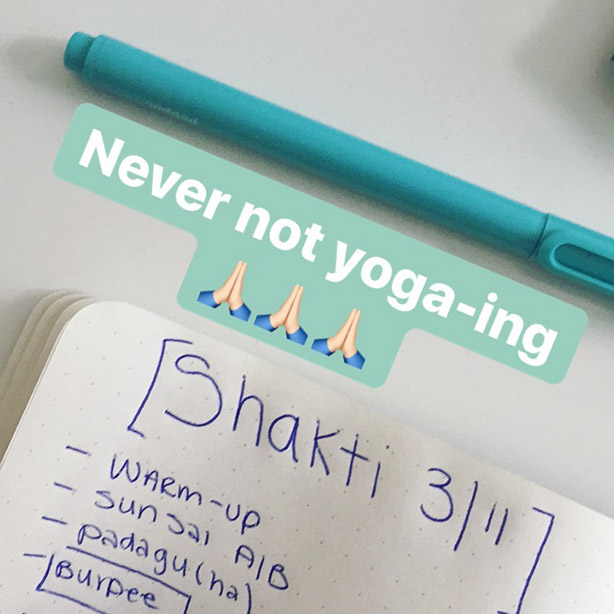 Never not yoga-ing
🙏🏻🙏🏻🙏🏻
[Shakti 3/11]
- WARM-UP
- Sun Sal A/B
- padagu(ha)
- Burpee